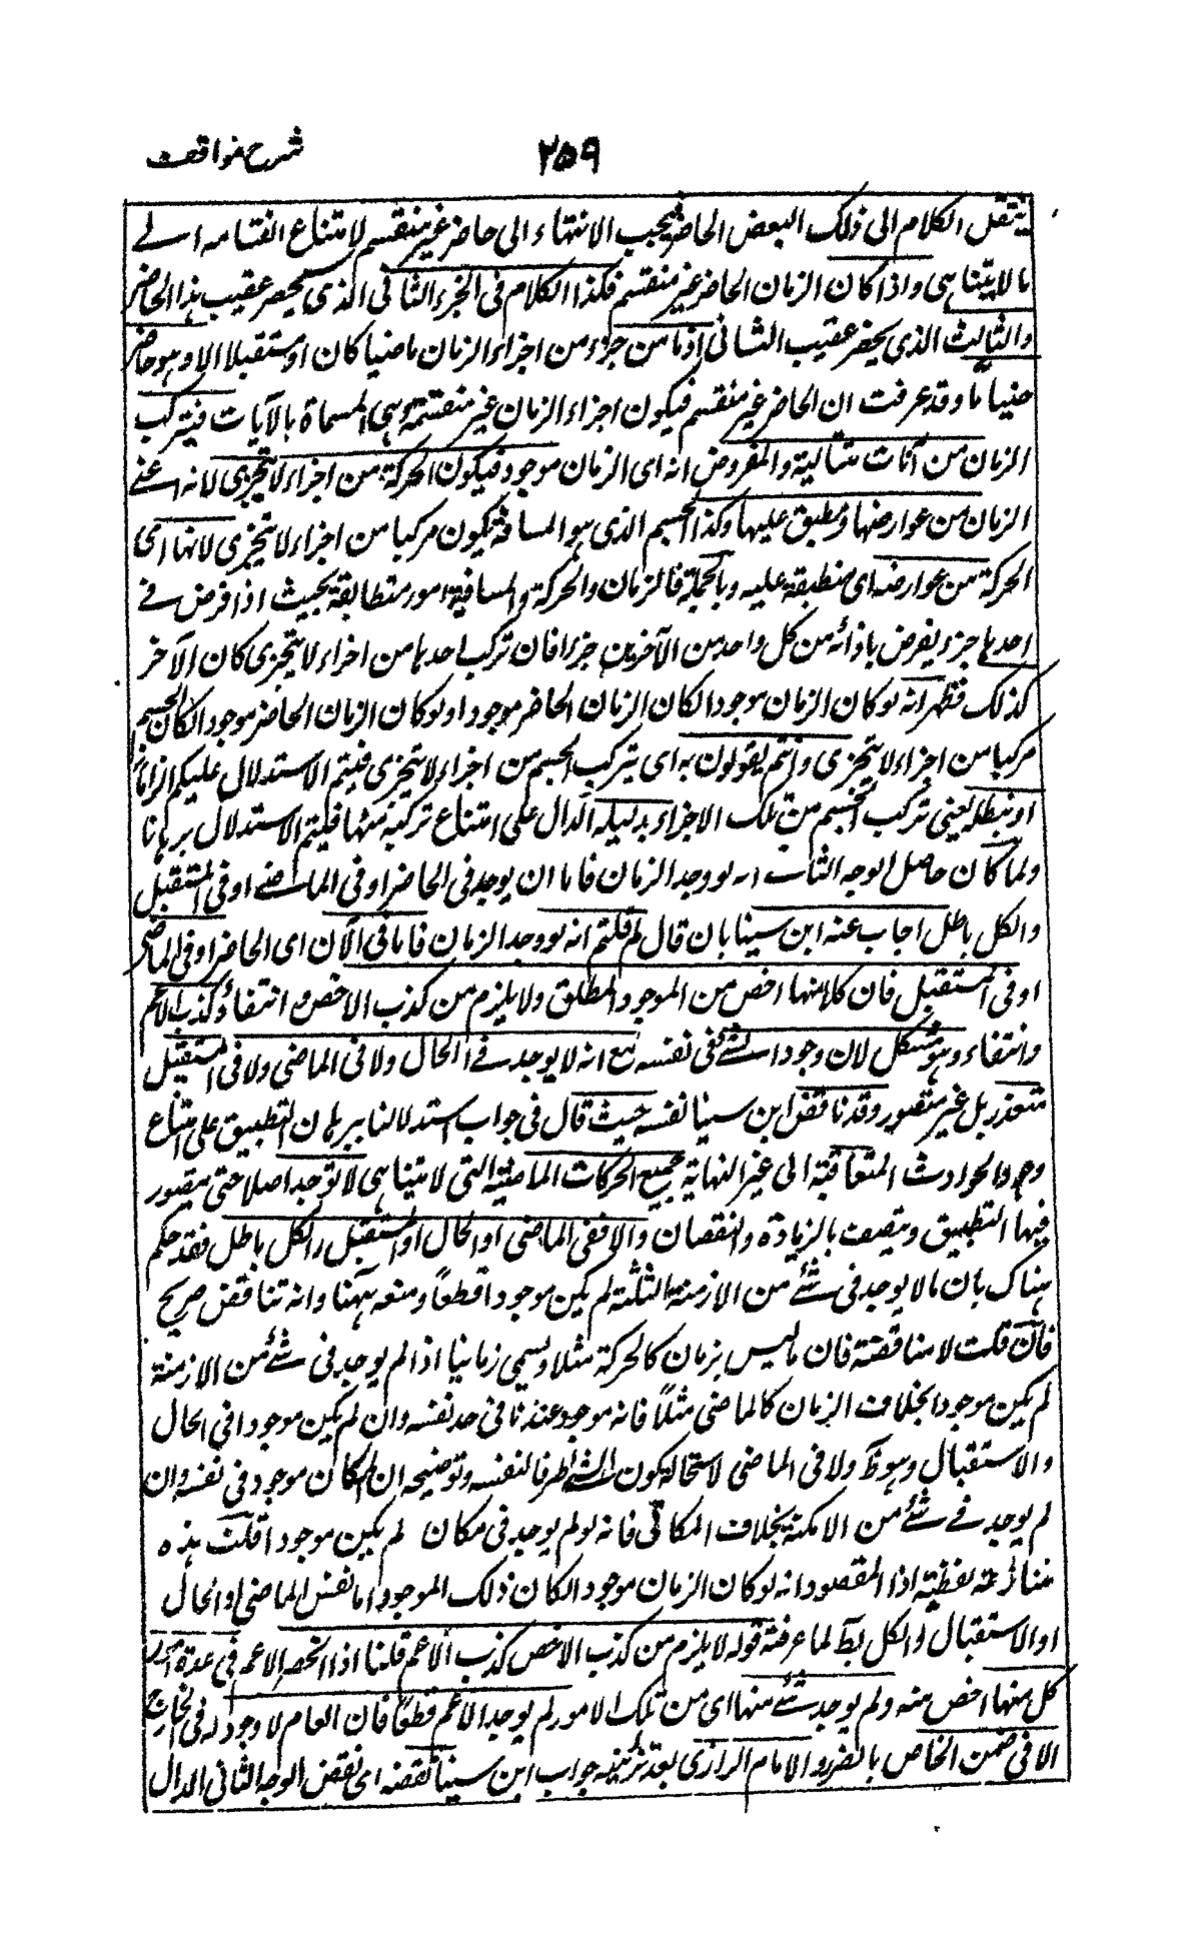 شرح مواقف ٢٥٩
ينتقل الكلام الى ذلك البعض الحاضر فيجب الانتهاء الى حاضر غير منقسم لامتناع انقسامه الے
مالا يتناهى واذا كان الزمان الحاضر غير منقسم فكذا الكلام فى الجزء الثانى الذى يحضر عقيب هذا الحاضر
والثالث الذى يحضر عقيب الثانى اذ ما من جزء من اجزاء الزمان ماضيا كان او مستقبلا الا وهو حاضر
حينا ما وقد عرفت ان الحاضر غير منقسم فيكون اجزاء الزمان غير منقسمة وهى المسماة بالآنات فيتركب
الزمان من آنات متتالية والمفروض انه اى الزمان موجود فيكون الحركة من اجزاء لا يتجزى لانه اعنے
الزمان من عوارضها ومطبق عليها وكذا الجسم الذى هو المسافة يكون مركبا من اجزاء لا يتجزى لانها اى
الحركة من عوارضه اى منطبقة عليه وبالجملة فالزمان والحركة والمسافة امور متطابقة بحيث اذا فرض فے
احدها جزء يفرض باذائه من كل واحد من الآخرين جزء فان تركب احدها من اجزاء لا يتجزى كان الآخر
كذلك فظهر انه لو كان الزمان موجودا لكان الزمان الحاضر موجودا ولو كان الزمان الحاضر موجودا لكان الجسم
مركبا من اجزاء لا يتجزى وانتم لا يقولون به اى بتركب الجسم من اجزاء لا يتجزى فيتم الاستدلال عليكم الزاما
او نبطله يعنى تركب الجسم من تلك الاجزاء بدليله الدال على امتناع تركبه منها فيتم الاستدلال برهانا
ولما كان حاصل الوجه الثانى انه لو وجد الزمان فاما ان يوجد فى الحاضر او فى الماضے او فى المستقبل
والكل باطل اجاب عنه ابن سينا بان قال لم قلتم انه لو وجد الزمان فاما فى الآن اى الحاضر او فى الماضى
او فى المستقبل فان كلا منها اخص من الموجود المطلق ولا يلزم من كذب الاخص وانتفائه كذب الاعم
وانتفاءه وهو مشكل لان وجود الشئ فى نفسه مع انه لا يوجد فى الحال ولا فى الماضى ولا فى المستقبل
متعذر بل غير متصور وقد ناقض ابن سينا نفسه حيث قال فى جواب استدلالنا ببرهان التطبيق على امتناع
وجود الحوادث المتعاقبة الى غير النهاية جميع الحركات الماضية التى لا يتناهى لا توجد اصلا حتى يتصور
فيها التطبيق ويتصف بالزيادة والنقصان والا ففى الماضى او الحال او المستقبل والكل باطل فقد حكم
هناك بان مالا يوجد فى شئ من الازمنة الثلثة لم يكن موجودا قطعاً ومنعه ههنا وانه تناقض صريح
فان قلت لا مناقضة فان ما ليس بزمان كالحركة مثلا ويسمى زمانيا اذا لم يوجد فى شئ من الازمنة
لم يكن موجودا بخلاف الزمان كالماضى مثلاً فانه موجود عندنا فى حد نفسه وان لم يكن موجودا فى الحال
والاستقبال وهو ظ ولا فى الماضى لاستحالة كون الشئ ظرفا لنفسه وتوضيحه ان المكان موجود فى نفسه وان
لم يوجد فے شئ من الامكنة بخلاف المكانى فانه لو لم يوجد فى مكان لم يكن موجودا قلت هذه
منازعة لفظية اذ المقصود انه لو كان الزمان موجودا لكان ذلك الموجود اما نفس الماضى او الحال
او الاستقبال والكل بط لما عرفته قوله لا يلزم من كذب الاخص كذب الاعم قلنا اذا انحصر الاعم فى عدة امور
كل منها اخص منه ولم يوجد شئ منها اى من تلك الامور لم يوجد الاعم قطعاً فان العام لا وجود له فى الخارج
الا فى ضمن الخاص بالضرورة والامام الرازى بعد تزئيفه جواب ابن سينا نقضه اى نقض الوجه الثانى الدال